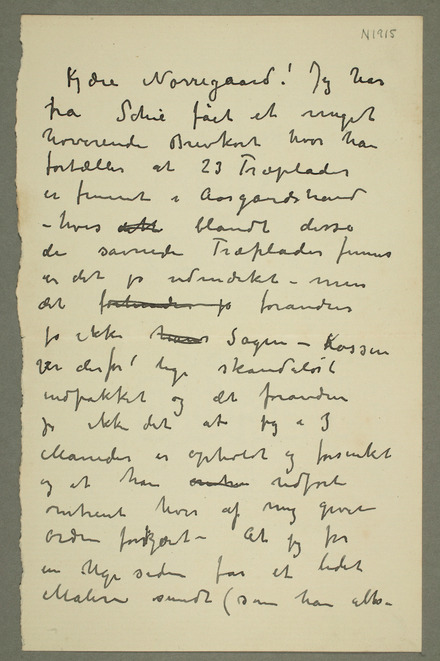 N1915
Kjære Nørregaard! Jeg har
fra Schie fået et meget
hoverende Brevkort hvor han
fortæller at 23 Træplader
er funnet i Aasgaardstrand
– hvis blandt disse
de savnede Træplader finnes
er det jo udmærket – men
det forandrer
jo ikke Sagen – Kassen
var derfor lige skandaløst
indpakket og det forandrer
jo ikke det at jeg i 3
Maaneder er opholdt og forsinket
og at han udført
omtrent hver af mig given
Ordre forkjært – At jeg for
en Uge siden får et lidet
Maleri sendt (som han altså